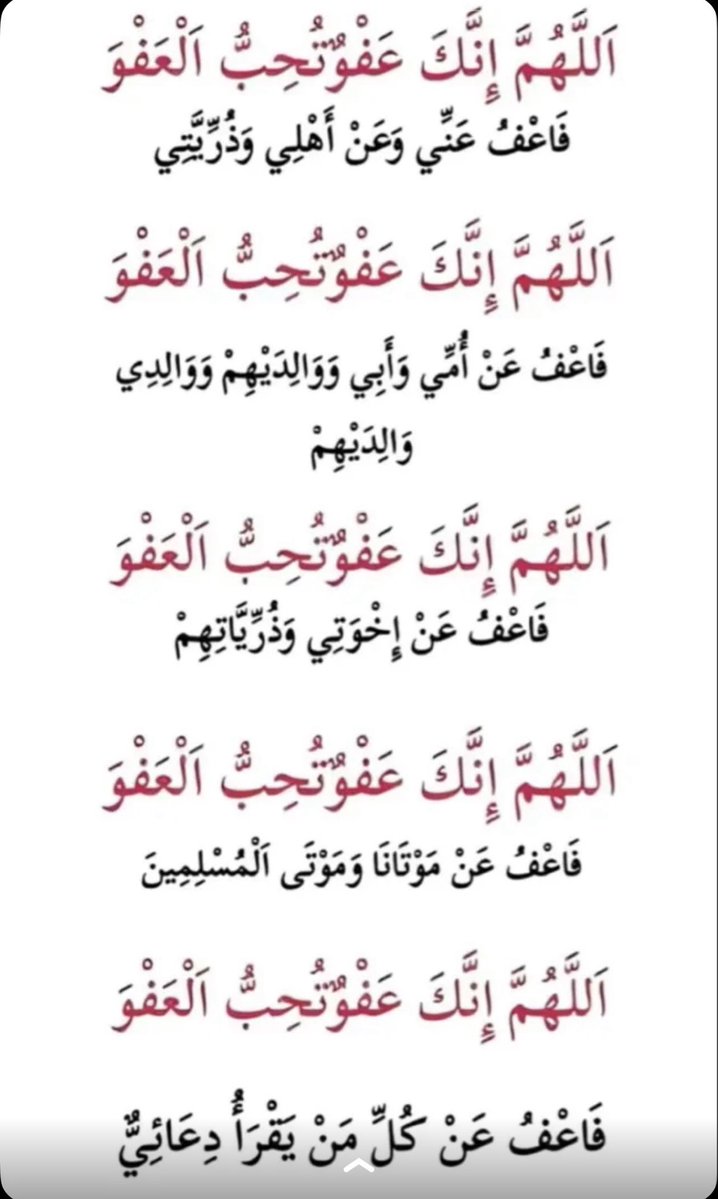 اَللَّهُمَّ إِنَّكَ عَفْوٌتُحِبُّ اَلْعَفْوَ
فَاعْفُ عَنِّي وَعَنْ أَهْلِي وَذُرِّيَّتِي
اَللَّهُمَّ إِنَّكَ عَفْوٌتُحِبُّ اَلْعَفْوَ
فَاعْفُ عَنْ أُمِّي وَأَبِي وَوَالِدَيْهِمْ وَوَالِدِي
وَالِدَيْهِمْ
اَللَّهُمَّ إِنَّكَ عَفْوٌتُحِبُّ اَلْعَفْوَ
فَاعْفُ عَنْ إِخْوَتِي وَذُرِّيَّاتِهِمْ
اَللَّهُمَّ إِنَّكَ عَفْوٌتُحِبُّ اَلْعَفْوَ
فَاعْفُ عَنْ مَوْتَانَا وَمَوْتَى اَلْمُسْلِمِينَ
اَللَّهُمَّ إِنَّكَ عَفْوٌتُحِبُّ اَلْعَفْوَ
فَاعْفُ عَنْ كُلِّ مَنْ يَقْرَأُ دِعَائِيٌّ